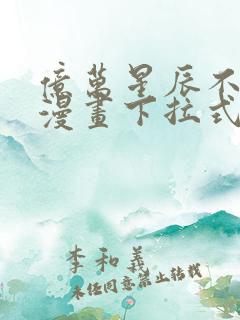 億萬星辰不
漫畫下拉式
李和義
未经同意禁止转载